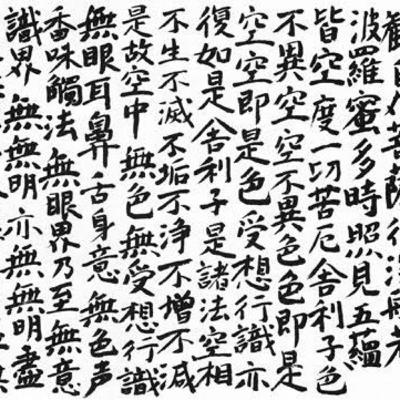 觀自在菩薩行深般若
波羅蜜多時照見五蘊
皆空度一切苦厄舍利子色
不異空空不異色色即是
空空即是色受想行識亦
復如是舍利子是諸法空相
不生不滅不垢不淨不增不減
是故空中無色無受想行識
無眼耳鼻舌身意無色声
香味觸法無眼界乃至無意
識界無無明亦無無明盡